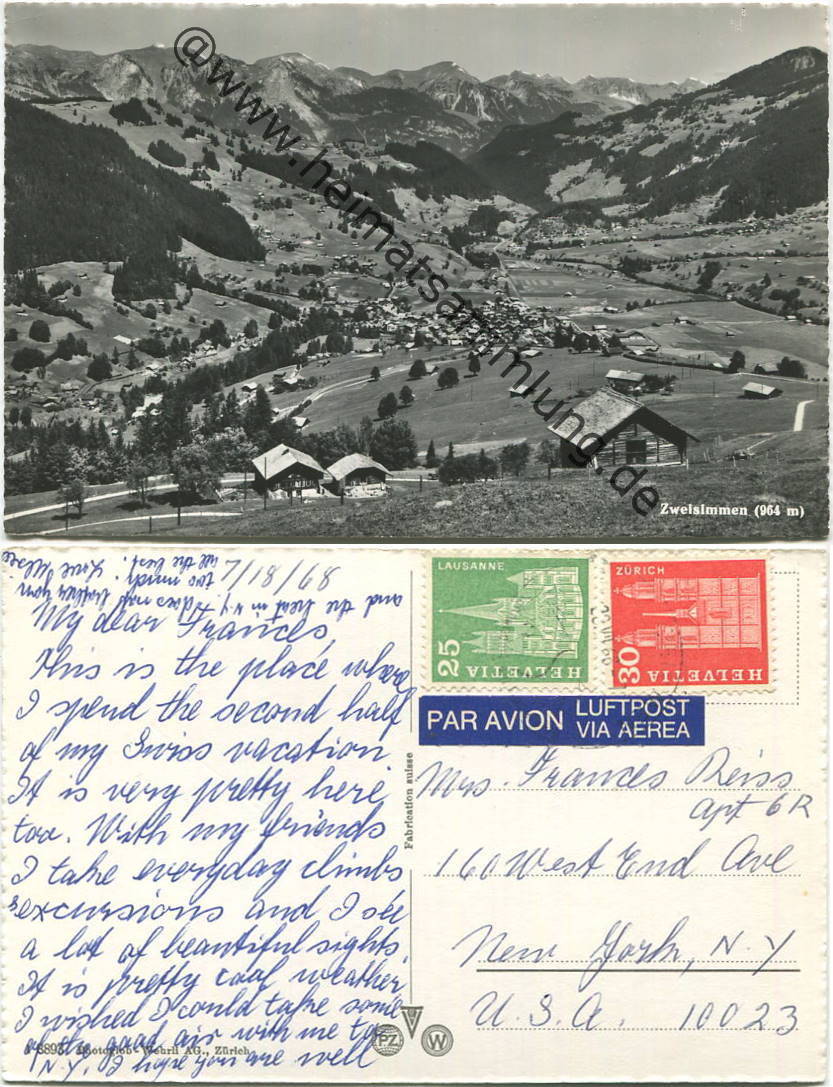 @www.heimatsammlung.de
Zweisimmen (964 m)
7/18/68
My dear Frances,
This is the place where
I spend the second half
of my Swiss vacation.
It is very pretty here
too. With my friends
I take everyday climbs
excursions and I see
a lot of beautiful sights.
It is pretty cool weather
I wished I could take some
of the good air with me to
N.Y. I hope you are well
and the heat in N.Y. does not bother you
too much.
all the best. Love
8893 Photoglob-Wehrli AG., Zürich
Fabrication suisse
PZ W
LAUSANNE
25
HELVETIA
ZÜRICH
30
HELVETIA
PAR AVION LUFTPOST
VIA AEREA
Mrs. Frances Reiss
Apt 6R
160 West End Ave
New York, N.Y
U.S.A. 10023